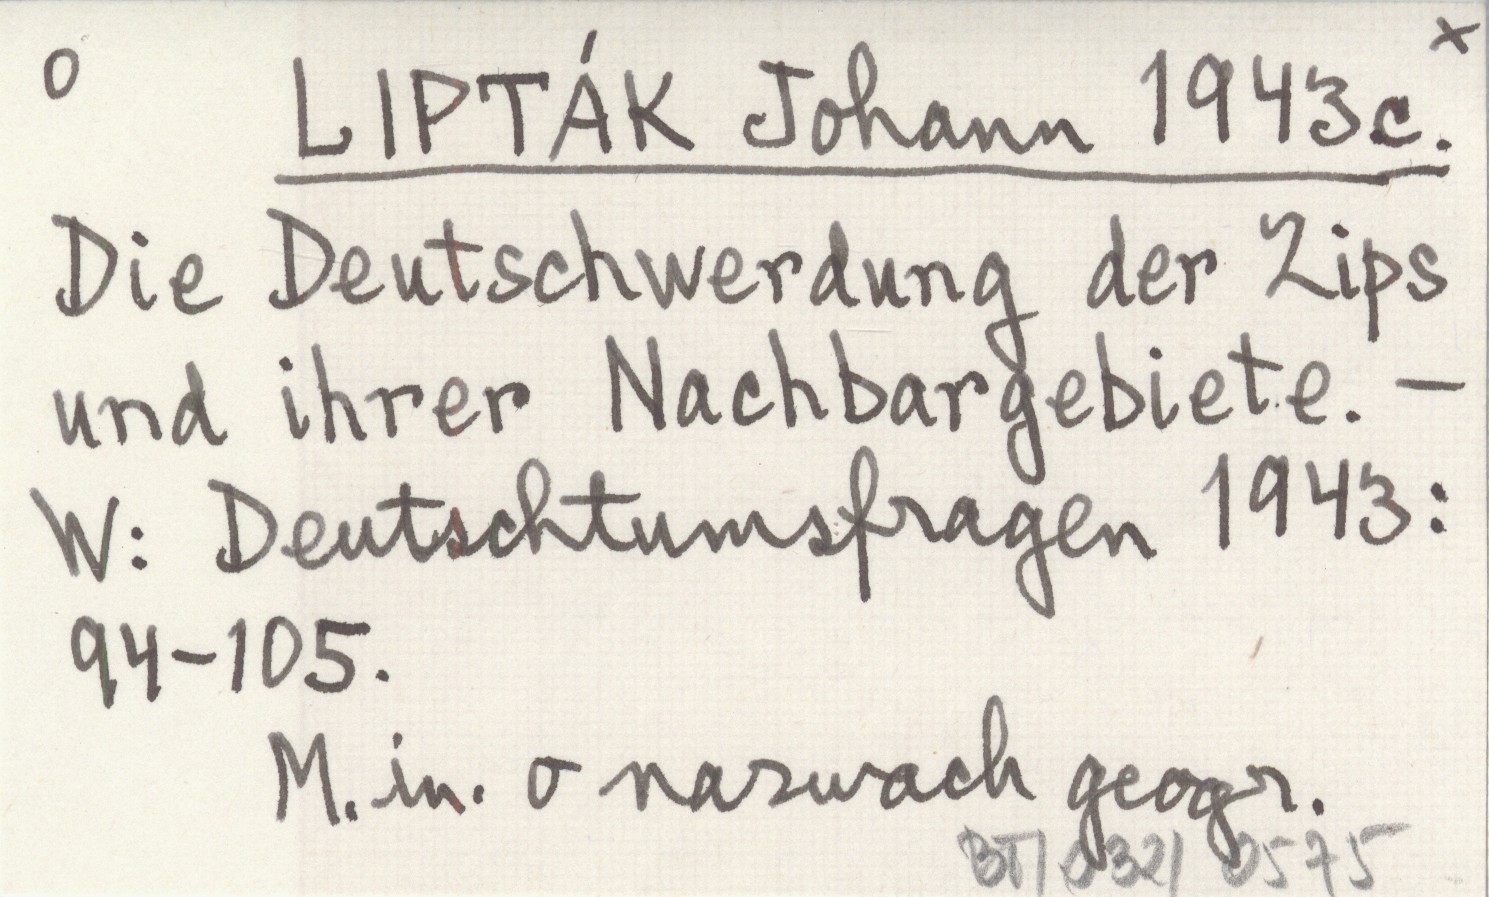 o LIPTÁK Johann 1943c. x
Die Deutschwerdung der Zips
und ihrer Nachbargebiete. –
W: Deutschtumsfragen 1943:
94–105.
M. in. o nazwach geogr.